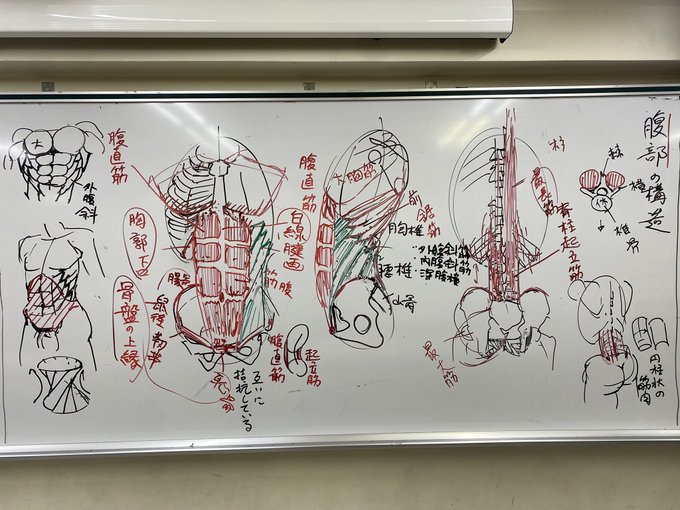 腹部の構造
大
外腹斜
腹直筋
胸部下
骨盤の上縁
腸骨
腹直筋
白線
腱画
筋腹
腹直筋
起立筋
互いに
拮抗している
大胸筋
前鋸筋
胸椎
腰椎
外腹斜筋
内腹斜筋
深腹横
最長筋
脊柱起立筋
最大筋
棘
横
体
椎骨
円柱状の
筋肉